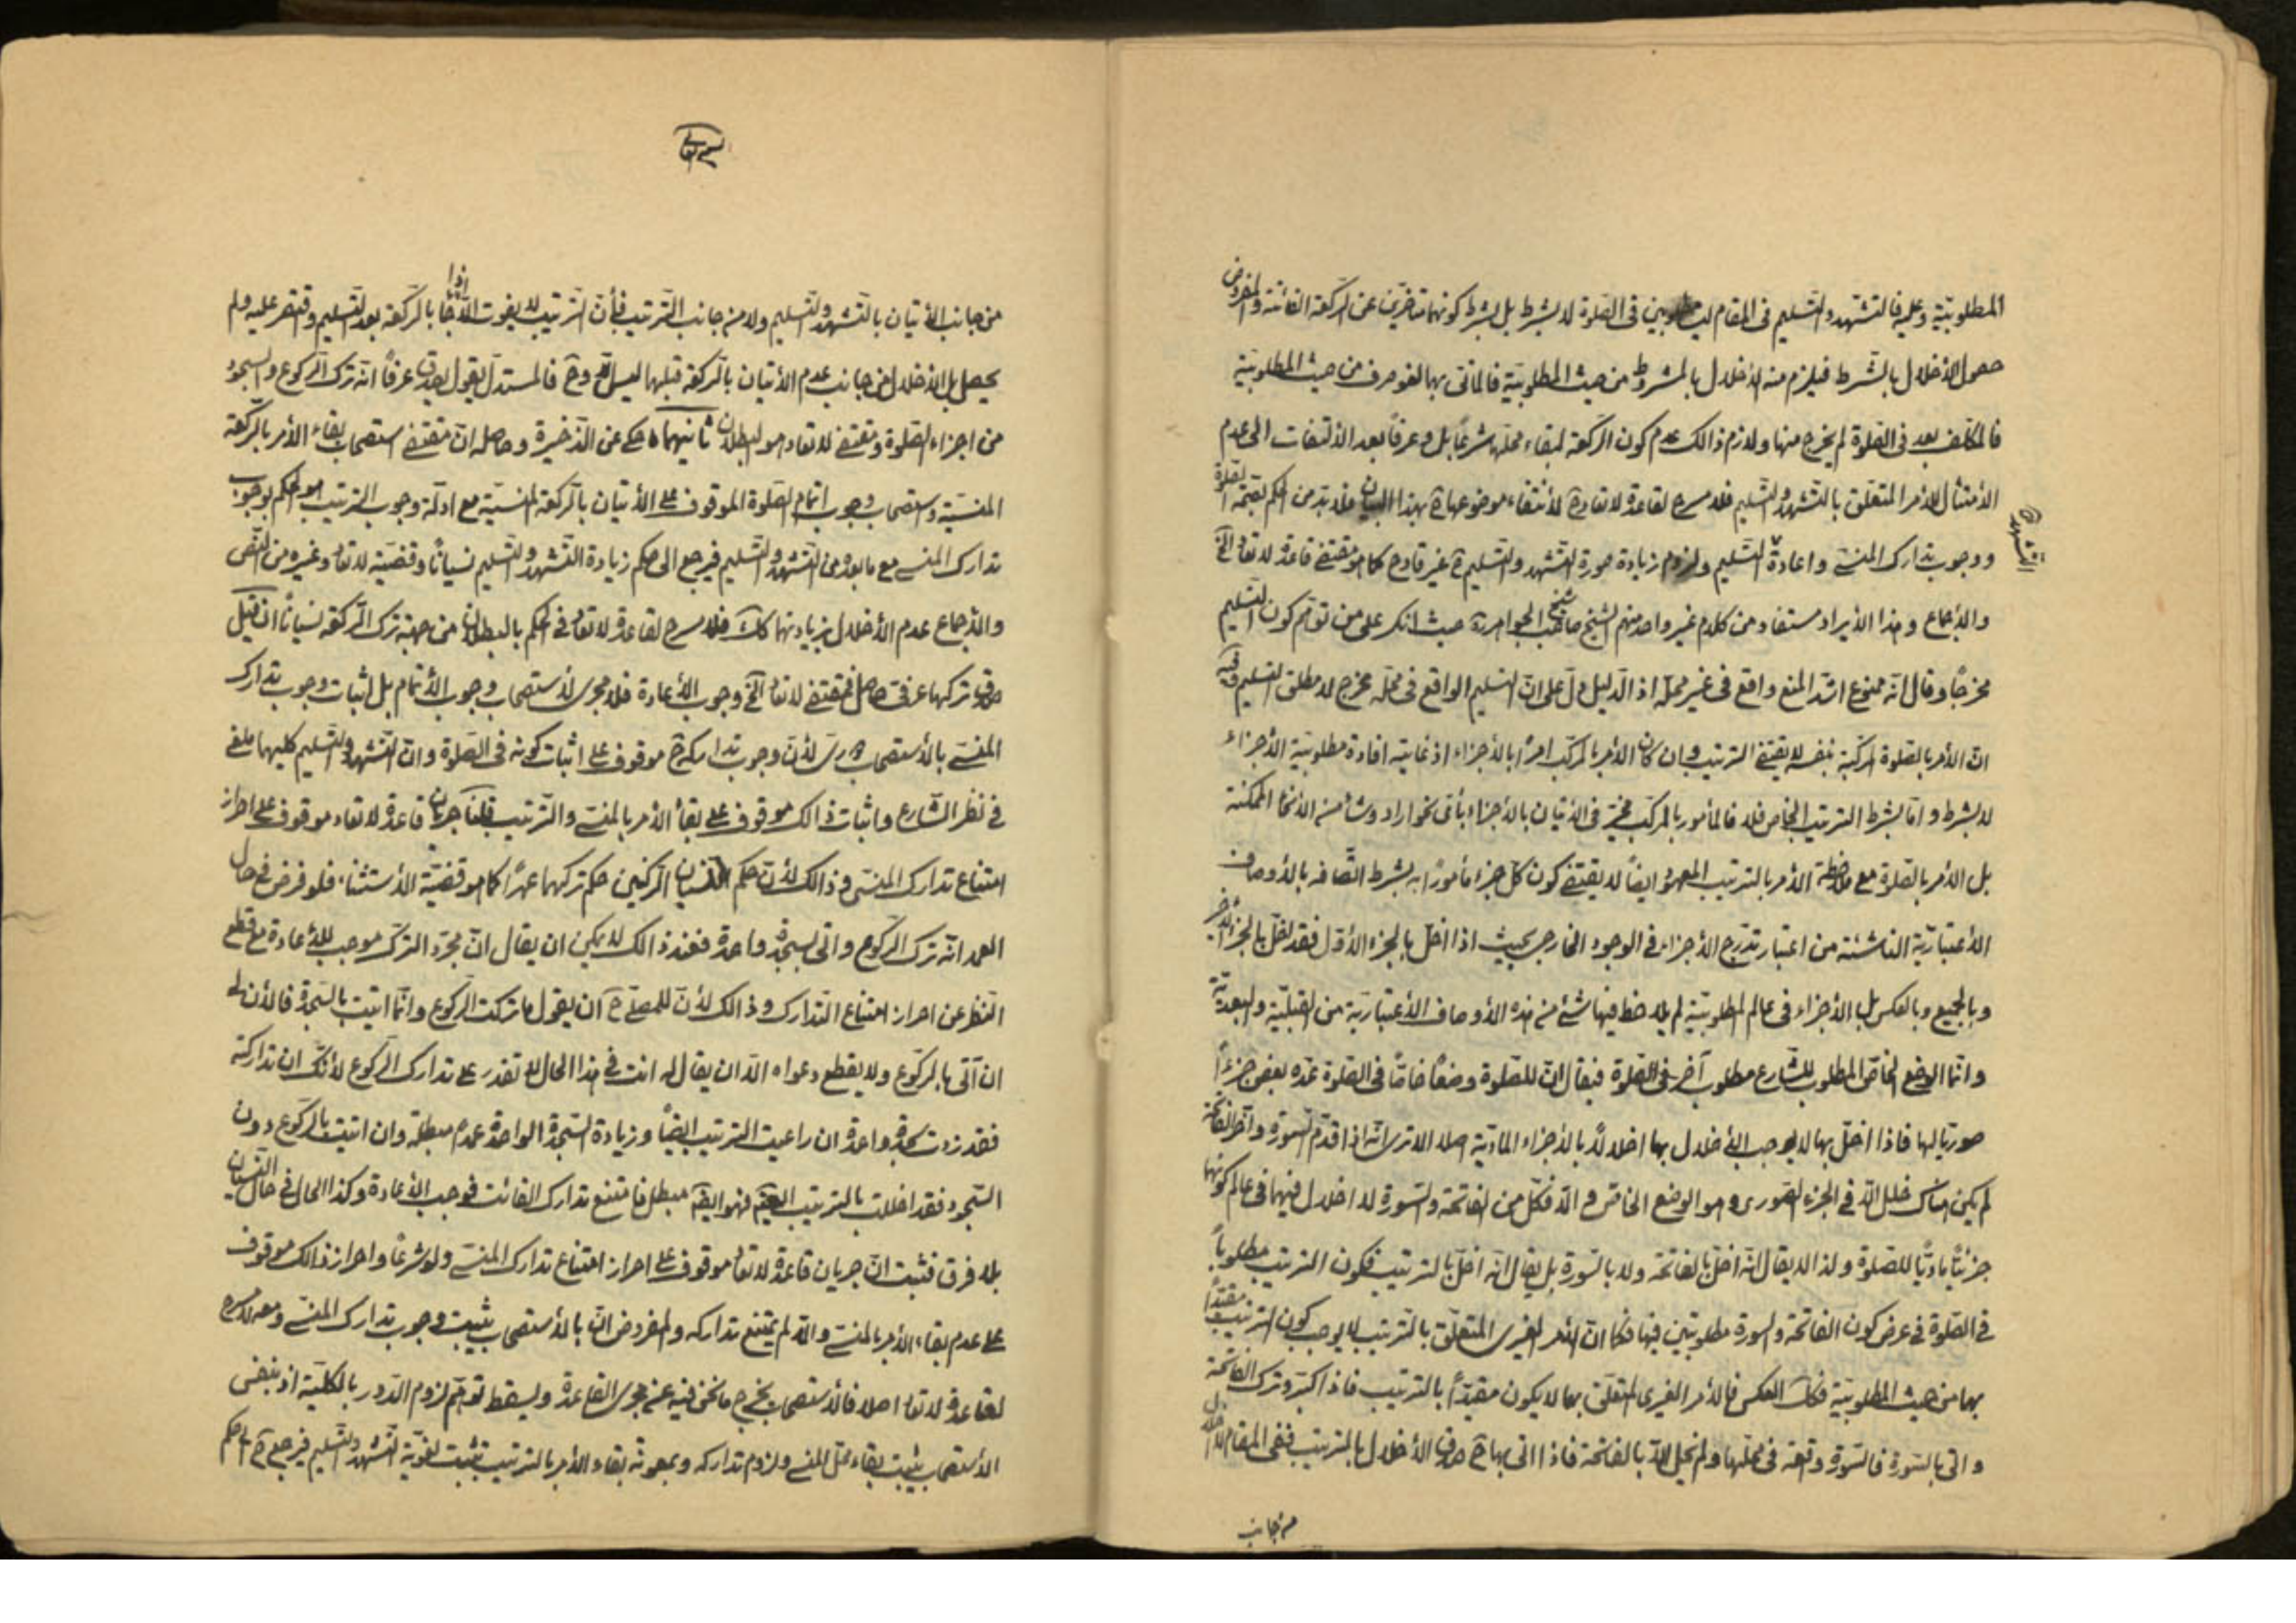 المطلوبيّة وعليه فالتشهد والتسليم فى المقام ليسا مطلوبين فى الصلوة لا بشرط بل بشرط كونهما متأخرين عن الركعة الفائتة والمفروض
حصول الأخلال بالشرط فيلزم منه الأخلال بالمشروط من حيث المطلوبيّة فالمأتى بها لغو صرف من حيث المطلوبيّة
فالمكلف بعد فى الصلوة لم يخرج منها ولازم ذالك عدم كون الركعة لبقاء محلها شرعاً بل وعرفاً بعد الألتفات الى عدم
الأمتثال للأمر المتعلق بالتشهد والتسليم فلا مسرح لقاعدة لاتعاد ح لأنتفاء موضوعها ح بهذا البيان فلا بد من الحكم بصحّة الصلوة
ووجوب تدارك المنسى واعادة التسليم ولزوم زيادة صورة التشهد والتسليم ح غير قادح كما هو مقتضى قاعدة لاتعاد الخ
التشهد و
والأجماع وهذا الأيراد مستفاد من كلام غير واحد منهم الشيخ صاحب الجواهر ره حيث انكر على من توهم كون التسليم
مخرجاً وقال انه ممنوع اشد المنع واقع فى غير محله اذ الدليل دل على ان التسليم الواقع فى محله مخرج لا مطلق التسليم وفيه
ان الأمر بالصلوة المركبة بنفسه لا يقتضى الترتيب وان كان الأمر بالمركب امراً بالأجزاء اذ غايته افادة مطلوبية الأجزاء
لا بشرط واما بشرط الترتيب الخاص فلا فالمأمور بالمركب مخيّر فى الأتيان بالأجزاء بأى نحو اراد وشاء من الأنحاء الممكنة
بل الأمر بالصلوة مع ملاحظة الأمر بالترتيب المعهود ايضاً لا يقتضى كون كل جزء مأموراً به بشرط اتصافه بالأوصاف
الأعتباريّة الناشئة من اعتبار تدرج الأجزاء فى الوجود الخارجى بحيث اذا اخل بالجزء الأول فقد اخل بالجزء الأخر
وبالجميع وبالعكس بل الأجزاء فى عالم المطلوبيّة لم يلاحظ فيها شئ من هذه الأوصاف الأعتباريّة من القبليّة والبعديّة
وانما الوضع الخاص المطلوب للشارع مطلوب آخر فى الصلوة فيقال ان للصلوة وضعاً خاصاً فى الصلوة عده بعض جزءاً
صورياً لها فاذا اخل بها لا يوجب الأخلال بها اخلالاً بالأجزاء المادّية اصلا الا ترى انه اذا قدم السورة وآخر الفاتحة
لم يكن هناك خلل الا فى الجزء الصورى وهو الوضع الخاص والا فكل من الفاتحة والسورة لا اخلال فيهما فى عالم كونهما
جزئاً مادّياً للصلوة ولذا لا يقال انه اخل بالفاتحة ولا بالسورة بل يقال انه اخل بالترتيب فكون الترتيب مطلوباً
فى الصلوة فى عرض كون الفاتحة والسورة مطلوبتين فيها فكما ان الأمر الغيرى المتعلق بالترتيب لا يوجب كون الترتيب مقيّداً
بهما من حيث المطلوبيّة فكك العكس فالأمر الغيرى المتعلق بهما لا يكون مقيّداً بالترتيب فاذا كبّر وترك الفاتحة
واتى بالسورة فالسورة وقعت فى محلها ولم يخل الا بالفاتحة فاذا اتى بها ح صدق الأخلال بالترتيب ففى المقام الأخلال
من جانب
بسمه تعالى
من جانب الأتيان بالتشهد والتسليم ولا من جانب الترتيب فأن الترتيب لا يفوت الا اذا جاء بالركعة بعد التسليم وقتصر عليه ولم
يحصل بل الأخلال من جانب عدم الأتيان بالركعة قبلهما ليس الا وح فالمستدل يقول يصدق عرفاً انه ترك الركوع والسجود
من اجزاء الصلوة ومقتضى لاتعاد هو البطلان ثانيهما ما حكى عن الذخيرة وحاصله ان مقتضى استصحاب بقاء الأمر بالركعة
المنسيّة واستصحاب وجوب اتمام الصلوة الموقوف على الأتيان بالركعة المنسيّة مع ادلة وجوب الترتيب هو الحكم بوجوب
تدارك المنسى مع ما بعده من التشهد والتسليم فيرجع الى حكم زيادة التشهد والتسليم نسياناً وقضيّة لاتعاد وغيره من النص
والأجماع عدم الأخلال بزيادتهما كك فلا مسرح لقاعدة لاتعاد فى الحكم بالبطلان من جهة ترك الركعة نسياناً ان قيل
صدق تركها عرفى حاصل فمقتضى لاتعاد الخ وجوب الأعادة فلا مجرى لأستصحاب وجوب الأتمام بل اثبات وجوب تدارك
المنسى بالأستصحاب دورى لأن وجوب تداركه ح موقوف على اثبات كونه فى الصلوة وان التشهد والتسليم كليهما ملغى
فى نظر الشارع واثبات ذالك موقوف على بقاء الأمر بالمنسى والترتيب قلنا جريان قاعدة لاتعاد موقوف على احراز
امتناع تدارك المنسى وذالك لأن حكم نسيان الركنين حكم تركهما عمداً كما هو قضيّة الأستثناء فلو فرض فى حال
العمد انه ترك الركوع واتى بسجدة واحدة فعند ذالك لا يمكن ان يقال ان مجرد الترك موجب للأعادة مع قطع
النظر عن احراز امتناع التدارك وذالك لأن للمصلى ح ان يقول ما تركت الركوع وانما اتيت بالسجدة فالأن لى
ان آتى بالركوع ولا يقطع دعواه الا ان يقال له انت فى هذا الحال لا تقدر على تدارك الركوع لأنك ان تداركته
فقد زدت سجدة واحدة ان راعيت الترتيب ايضاً وزيادة السجدة الواحدة عمداً مبطلة وان اتيت بالركوع دون
السجود فقد اخللت بالترتيب فهو ايضاً مبطل فامتنع تدارك الفائت فوجب الأعادة وكذا الحال فى حال النسيان
بلا فرق فثبت ان جريان قاعدة لاتعاد موقوف على احراز امتناع تدارك المنسى ولو شرعاً واحراز ذالك موقوف
على عدم بقاء الأمر بالمنسى والا لم يمتنع تداركه والمفروض ان بالأستصحاب يثبت وجوب تدارك المنسى ومعه لا مسرح
لقاعدة لاتعاد اصلا فالأستصحاب يخرج ما نحن فيه عن مجرى القاعدة ويسقط توهم لزوم الدور بالكلية اذ بنفس
الأستصحاب يثبت بقاء محل المنسى ولزوم تداركه وبمعونة بقاء الأمر بالترتيب يثبت لغويّة التشهد والتسليم فيرجع ح الى حكم